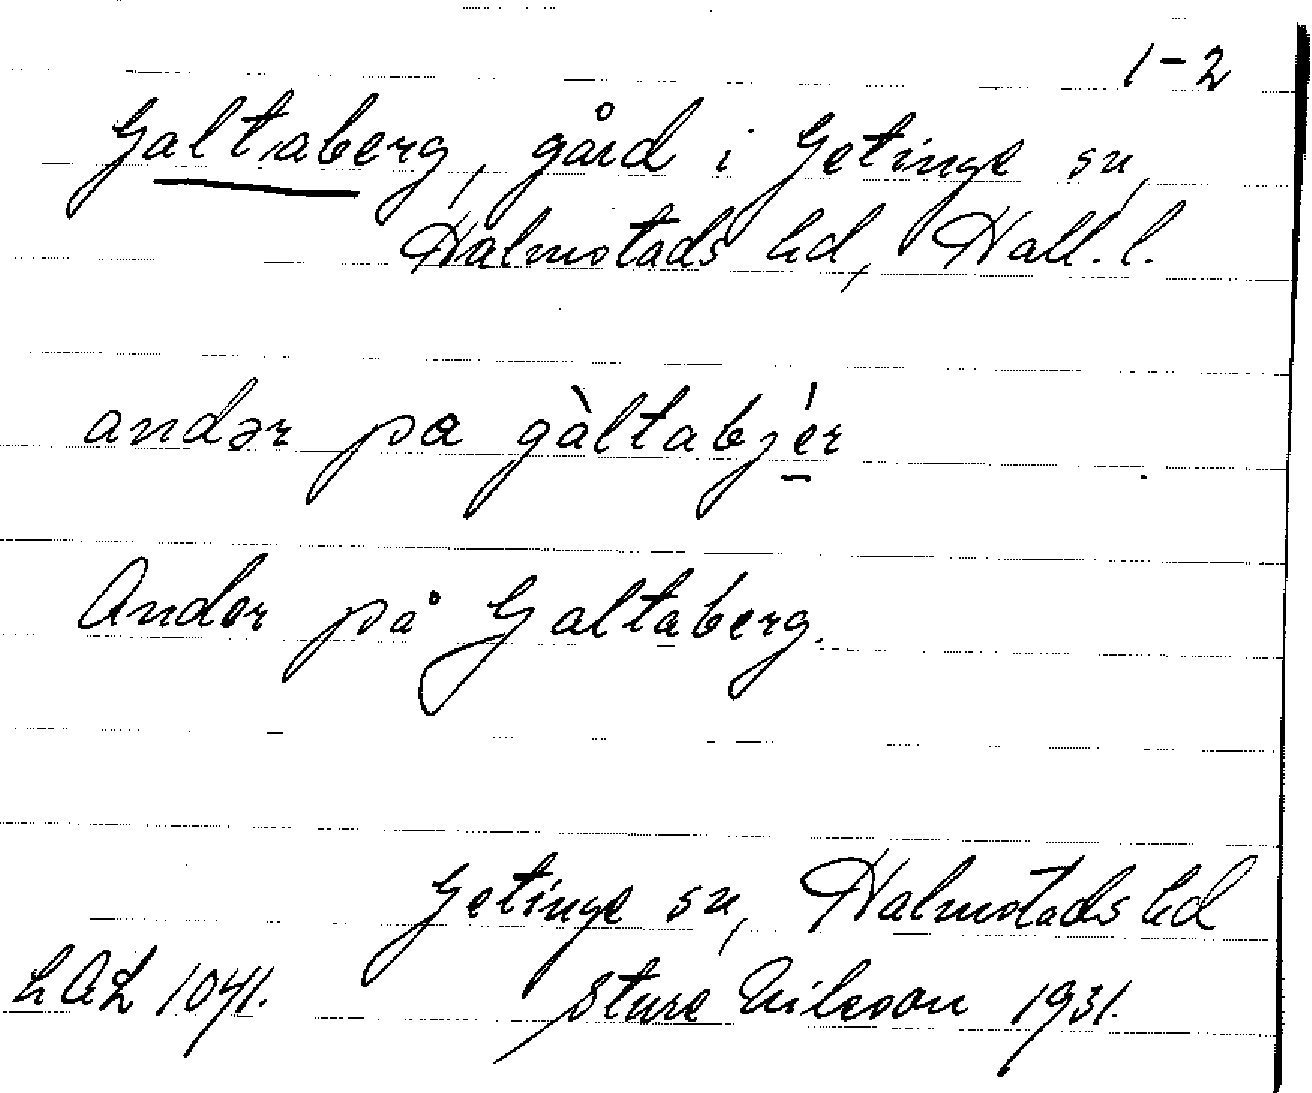 1-2
Galtaberg, gård i Getinge sn,
Halmstads hd, Hall. l.
andər pa gàltabjér
Ander på Galtaberg.
Getinge sn, Halmstads hd
LAL 1041. Sture Nilsson 1931.